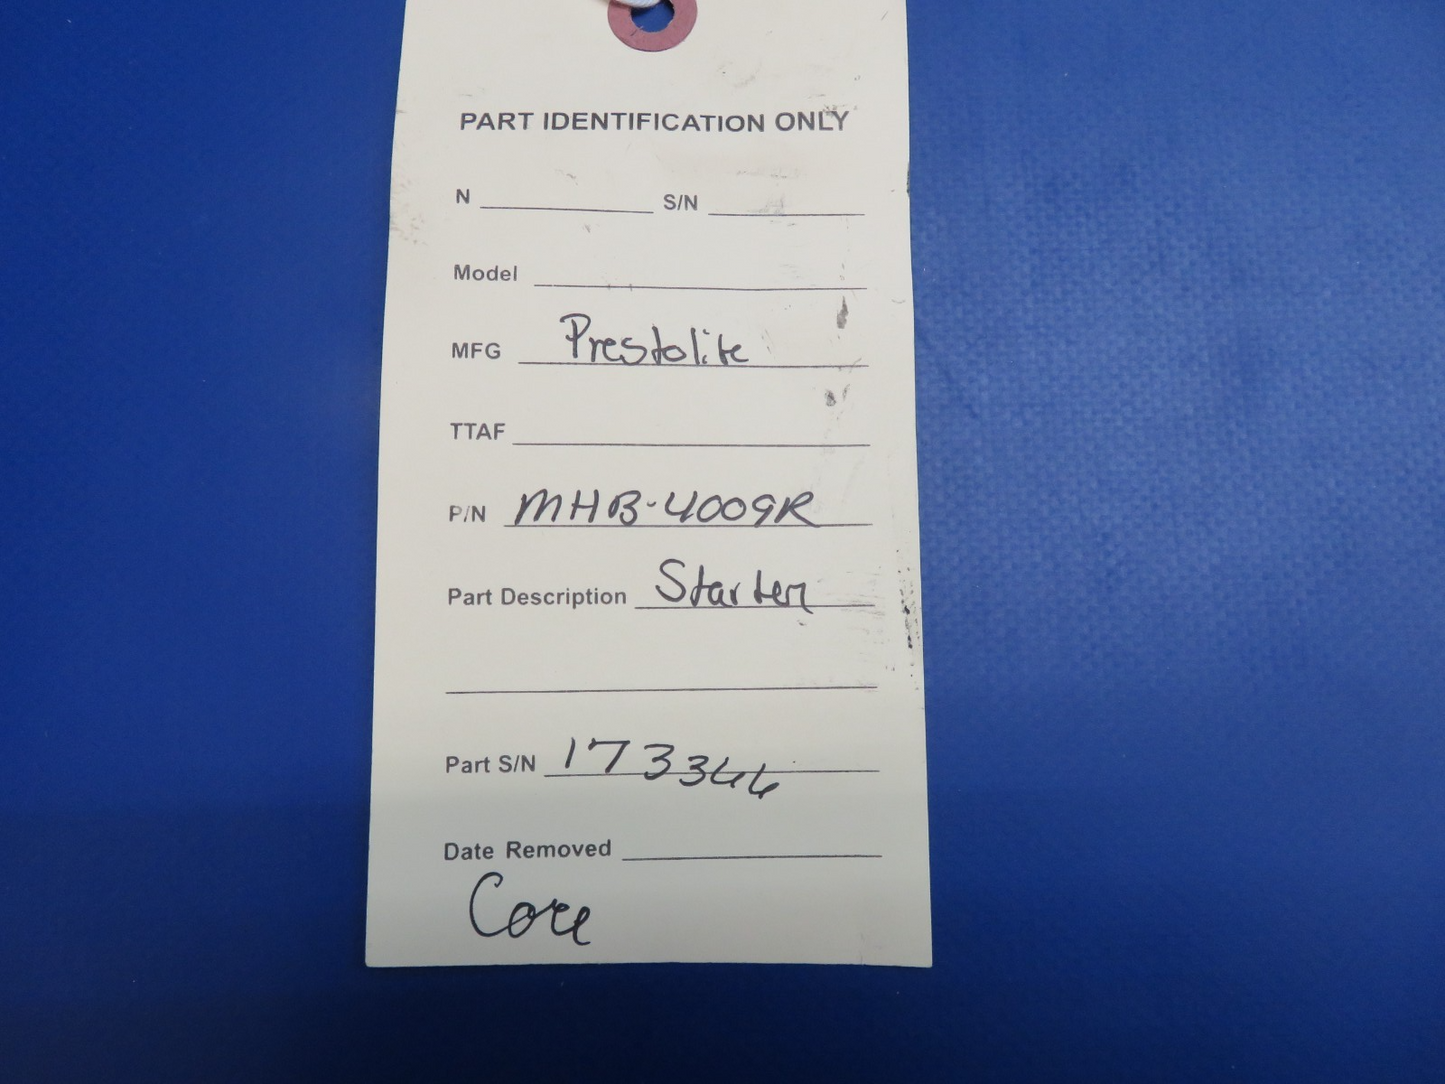 PART IDENTIFICATION ONLY
N S/N
Model
MFG Prestolite
TTAF
P/N MHB-4009R
Part Description Starter
Part S/N 173366
Date Removed
Core